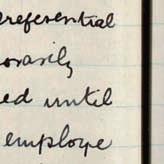 referential
orarily
ed until
employe